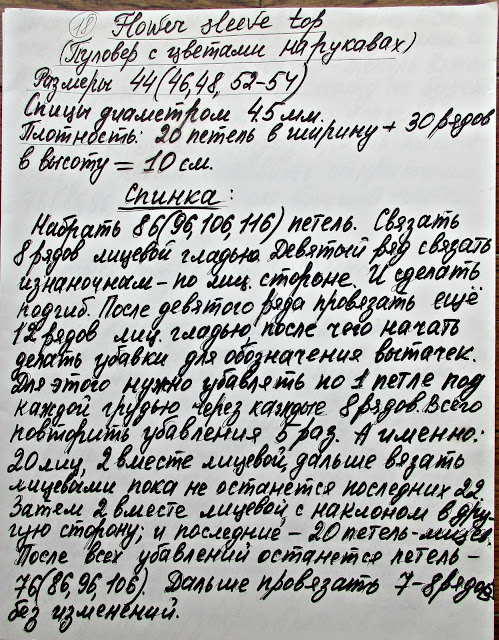 18 Flower sleeve top
(Пуловер с цветами на рукавах)
Размеры 44(46,48, 52-54)
Спицы диаметром 4.5 мм.
Плотность: 20 петель в ширину + 30 рядов
в высоту = 10 см.
Спинка:
Набрать 86(96,106,116) петель. Связать
8 рядов лицевой гладью. Девятый ряд связать
изнаночным - по лиц. стороне. И сделать
подгиб. После девятого ряда провязать ещё
12 рядов лиц. гладью, после чего начать
делать убавки для обозначения вытачек.
Для этого нужно убавлять по 1 петле под
каждой грудью через каждые 8 рядов. Всего
повторить убавления 5 раз. А именно:
20 лиц, 2 вместе лицевой, дальше вязать
лицевыми пока не останется последних 22.
Затем 2 вместе лицевой с наклоном в дру-
гую сторону; и последние - 20 петель-
После всех убавлений останется петель -
76(86,96,106). Дальше провязать 7-8 рядов
без изменений.